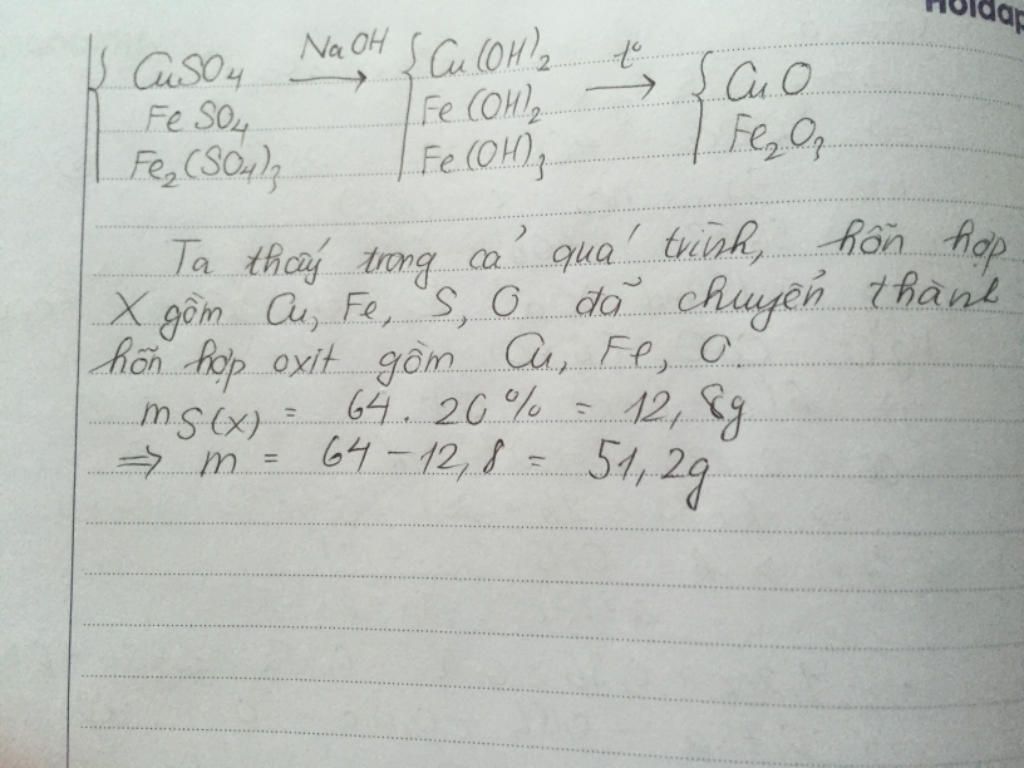 Hoidap
{ CuSO4 NaOH→ { Cu(OH)2 t°→ { CuO
FeSO4 Fe(OH)2 Fe2O3
Fe2(SO4)3 Fe(OH)3
Ta thấy trong cả quá trình, hỗn hợp
X gồm Cu, Fe, S, O đã chuyển thành
hỗn hợp oxit gồm Cu, Fe, O.
mS(X) = 64 . 20% = 12,8g
⇒ m = 64 - 12,8 = 51,2g